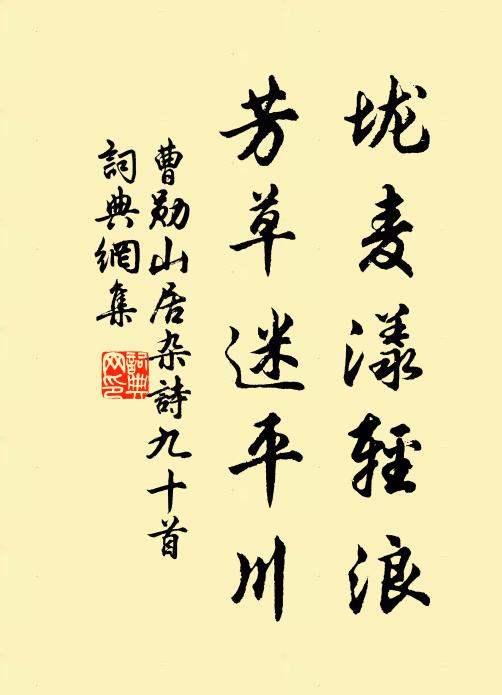 垅麦漾輕浪
芳草迷平川
曹勋山居杂詩九十首
詞典網集
詞典
网印